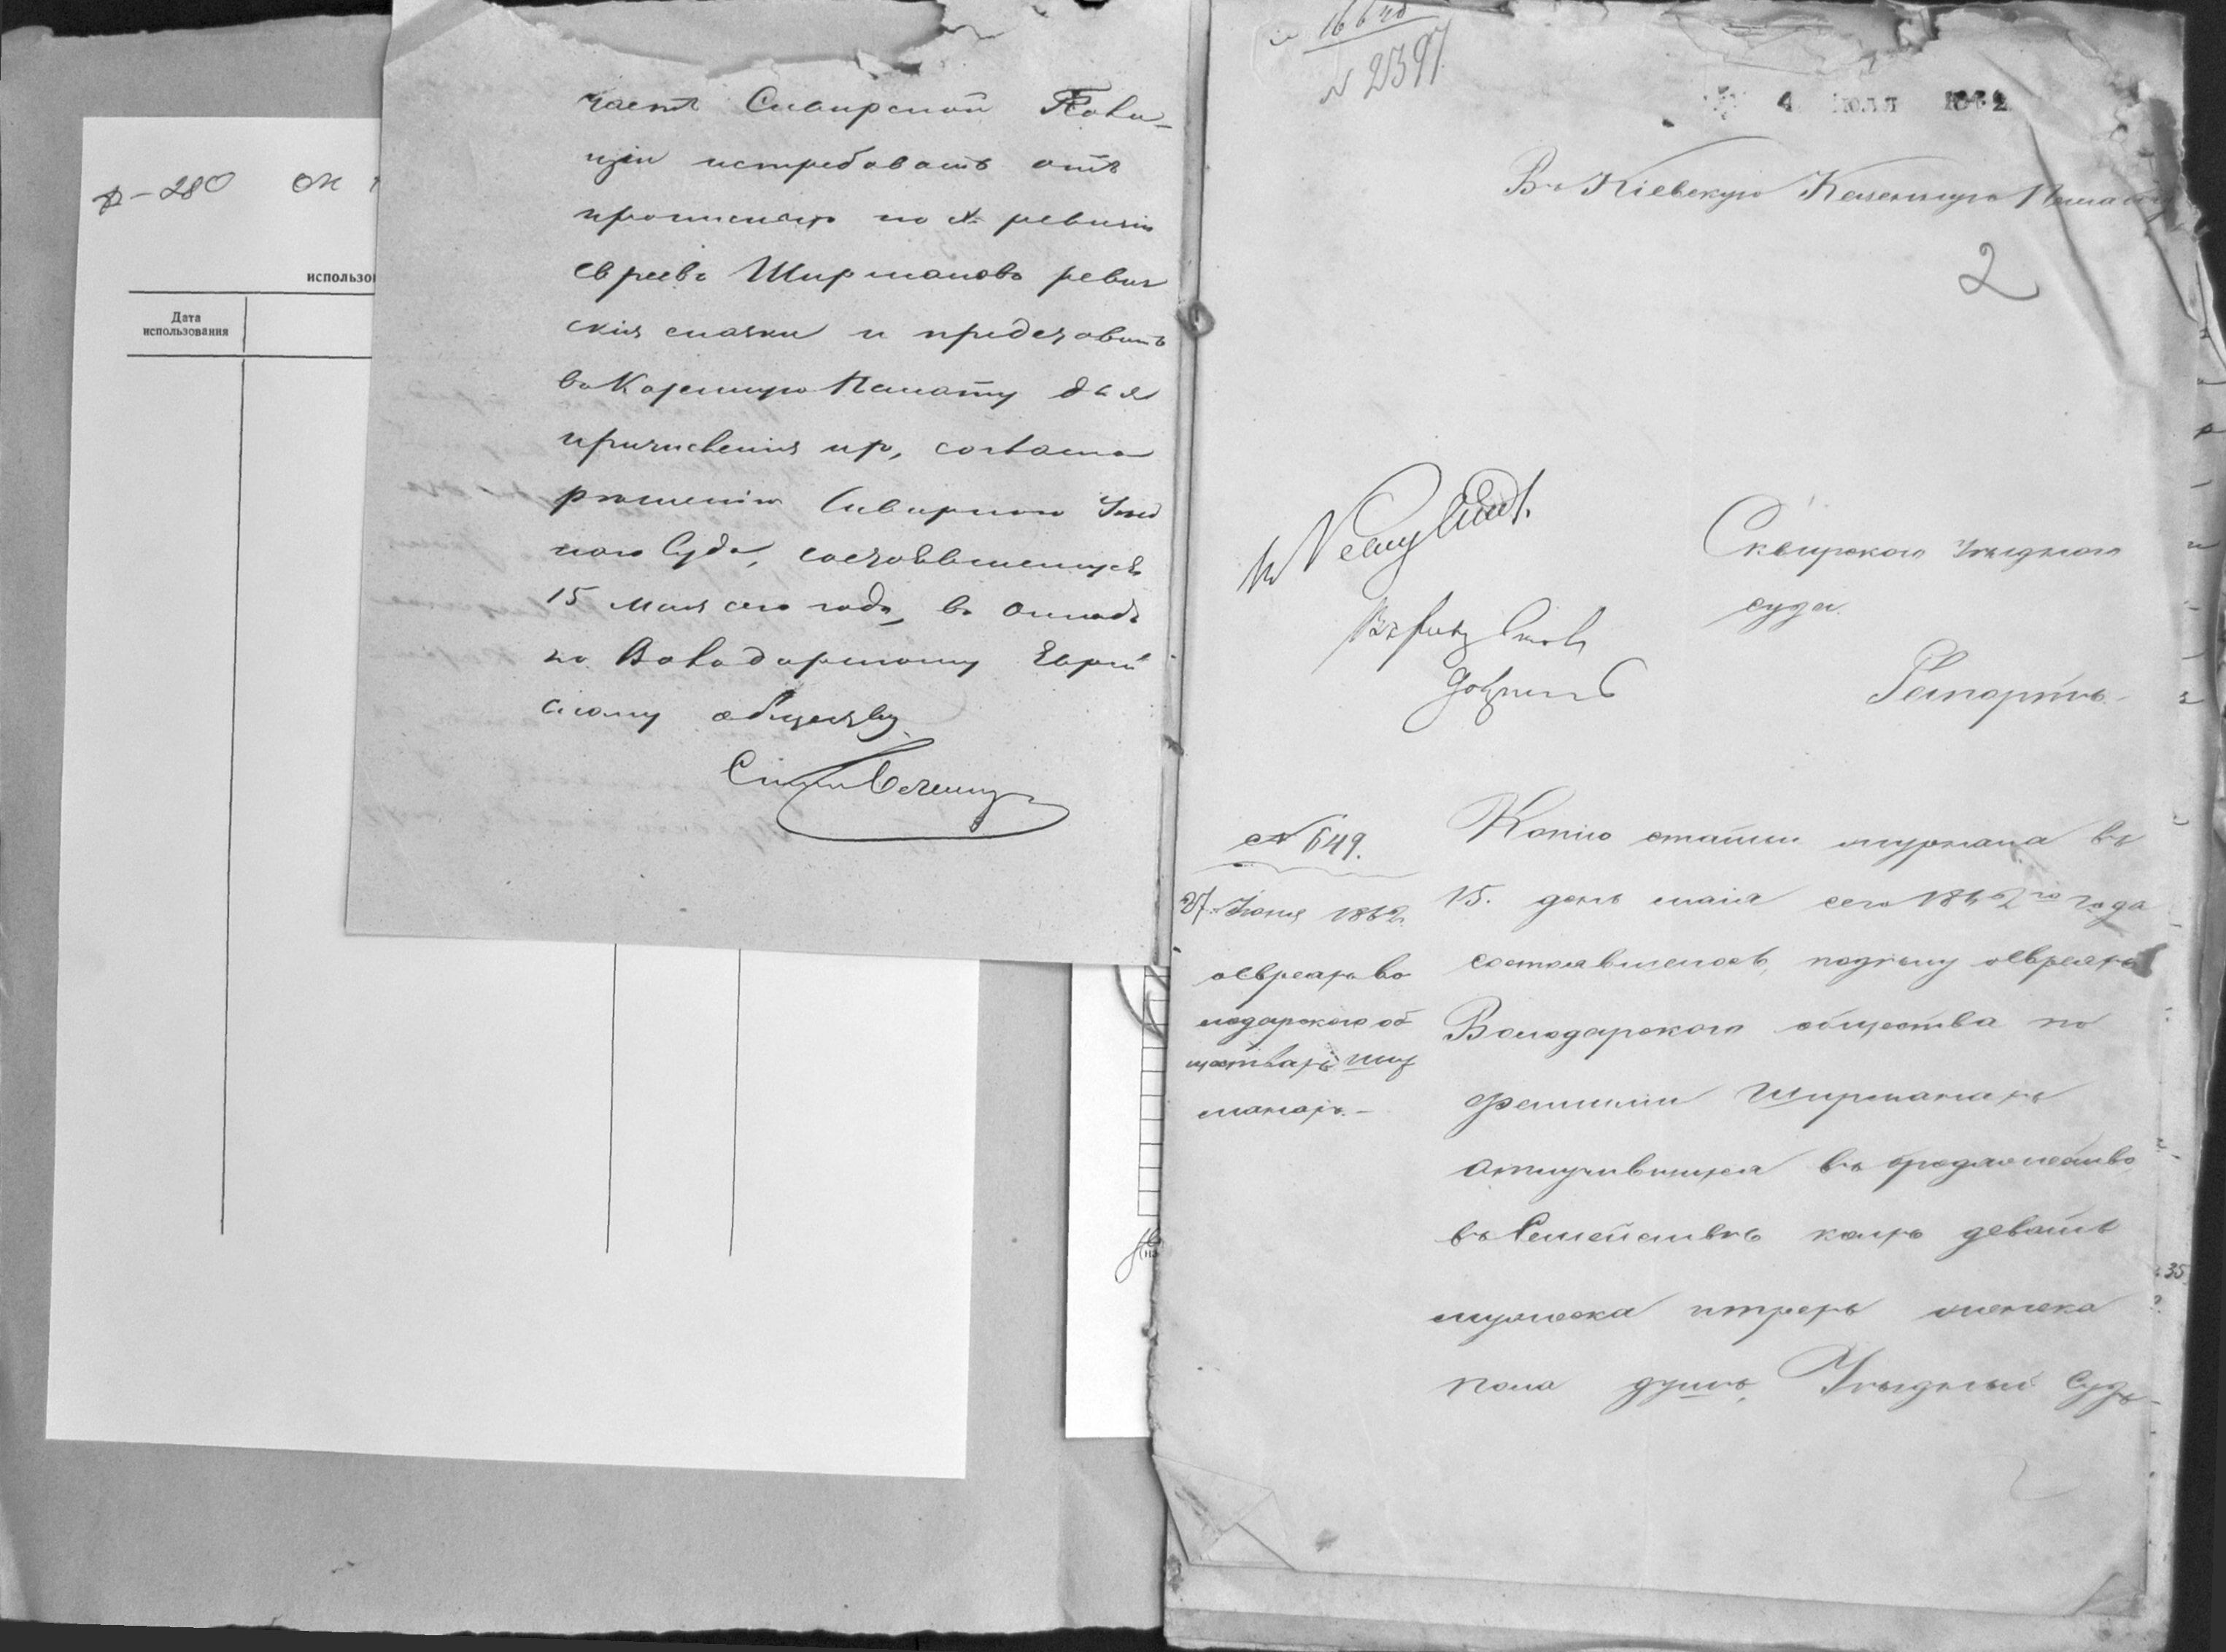 Ф-280 ОП
использо
Дата
использования
часть Сквирской Поли-
ціи истребовать отъ
прописныхъ по № ревизіи
евреевъ Ширмановъ ревиз
скія сказки и представить
въ Казенную Палату для
причисленія ихъ, согласно
рѣшенію Сквирскаго Уѣзд
наго Суда, состоявшемуся
15 Мая сего года, въ окладъ
по Володарскому Еврей
скому обществу
№ 2397
4 ІЮЛЯ 1862
Въ Кіевскую Казенную Палату
2
Сквирскаго Уѣзднаго
суда
Рапортъ
№ 649.
27 Іюня 1862
о Евреяхъ Во
лодарскаго об
щества Шир
манахъ.
Копію статьи журнала въ
15. день маія сего 1862го года
состоявшегося, по дѣлу о Евреяхъ
Володарскаго общества по
фамиліи Ширманахъ
отлучившихся въ бродяжество
въ Семействѣ коихъ девять
мужеска и трехъ женска
пола душъ, Уѣздный Судъ
35